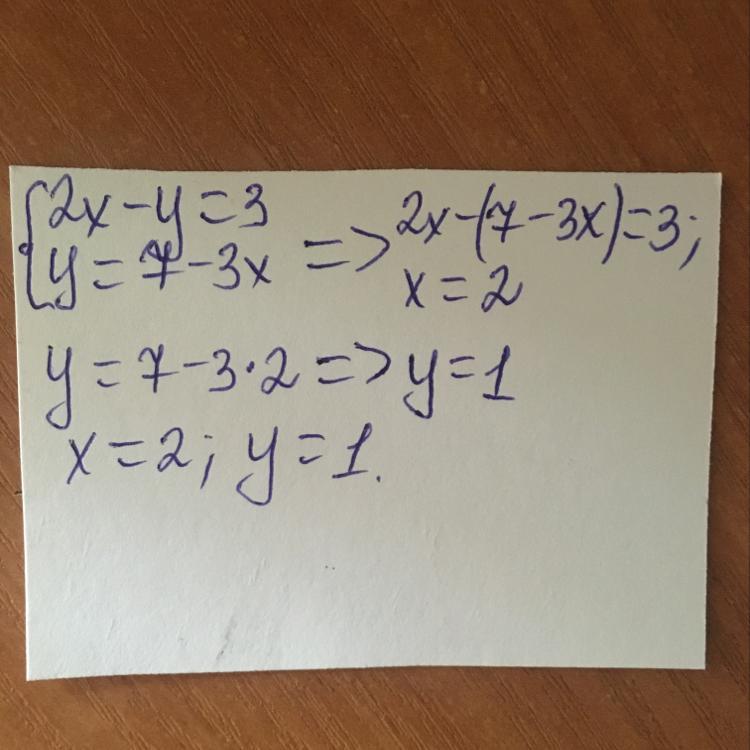 {2x-y=3
y=7-3x => 2x-(7-3x)=3;
x=2
y=7-3·2=>y=1
x=2; y=1.